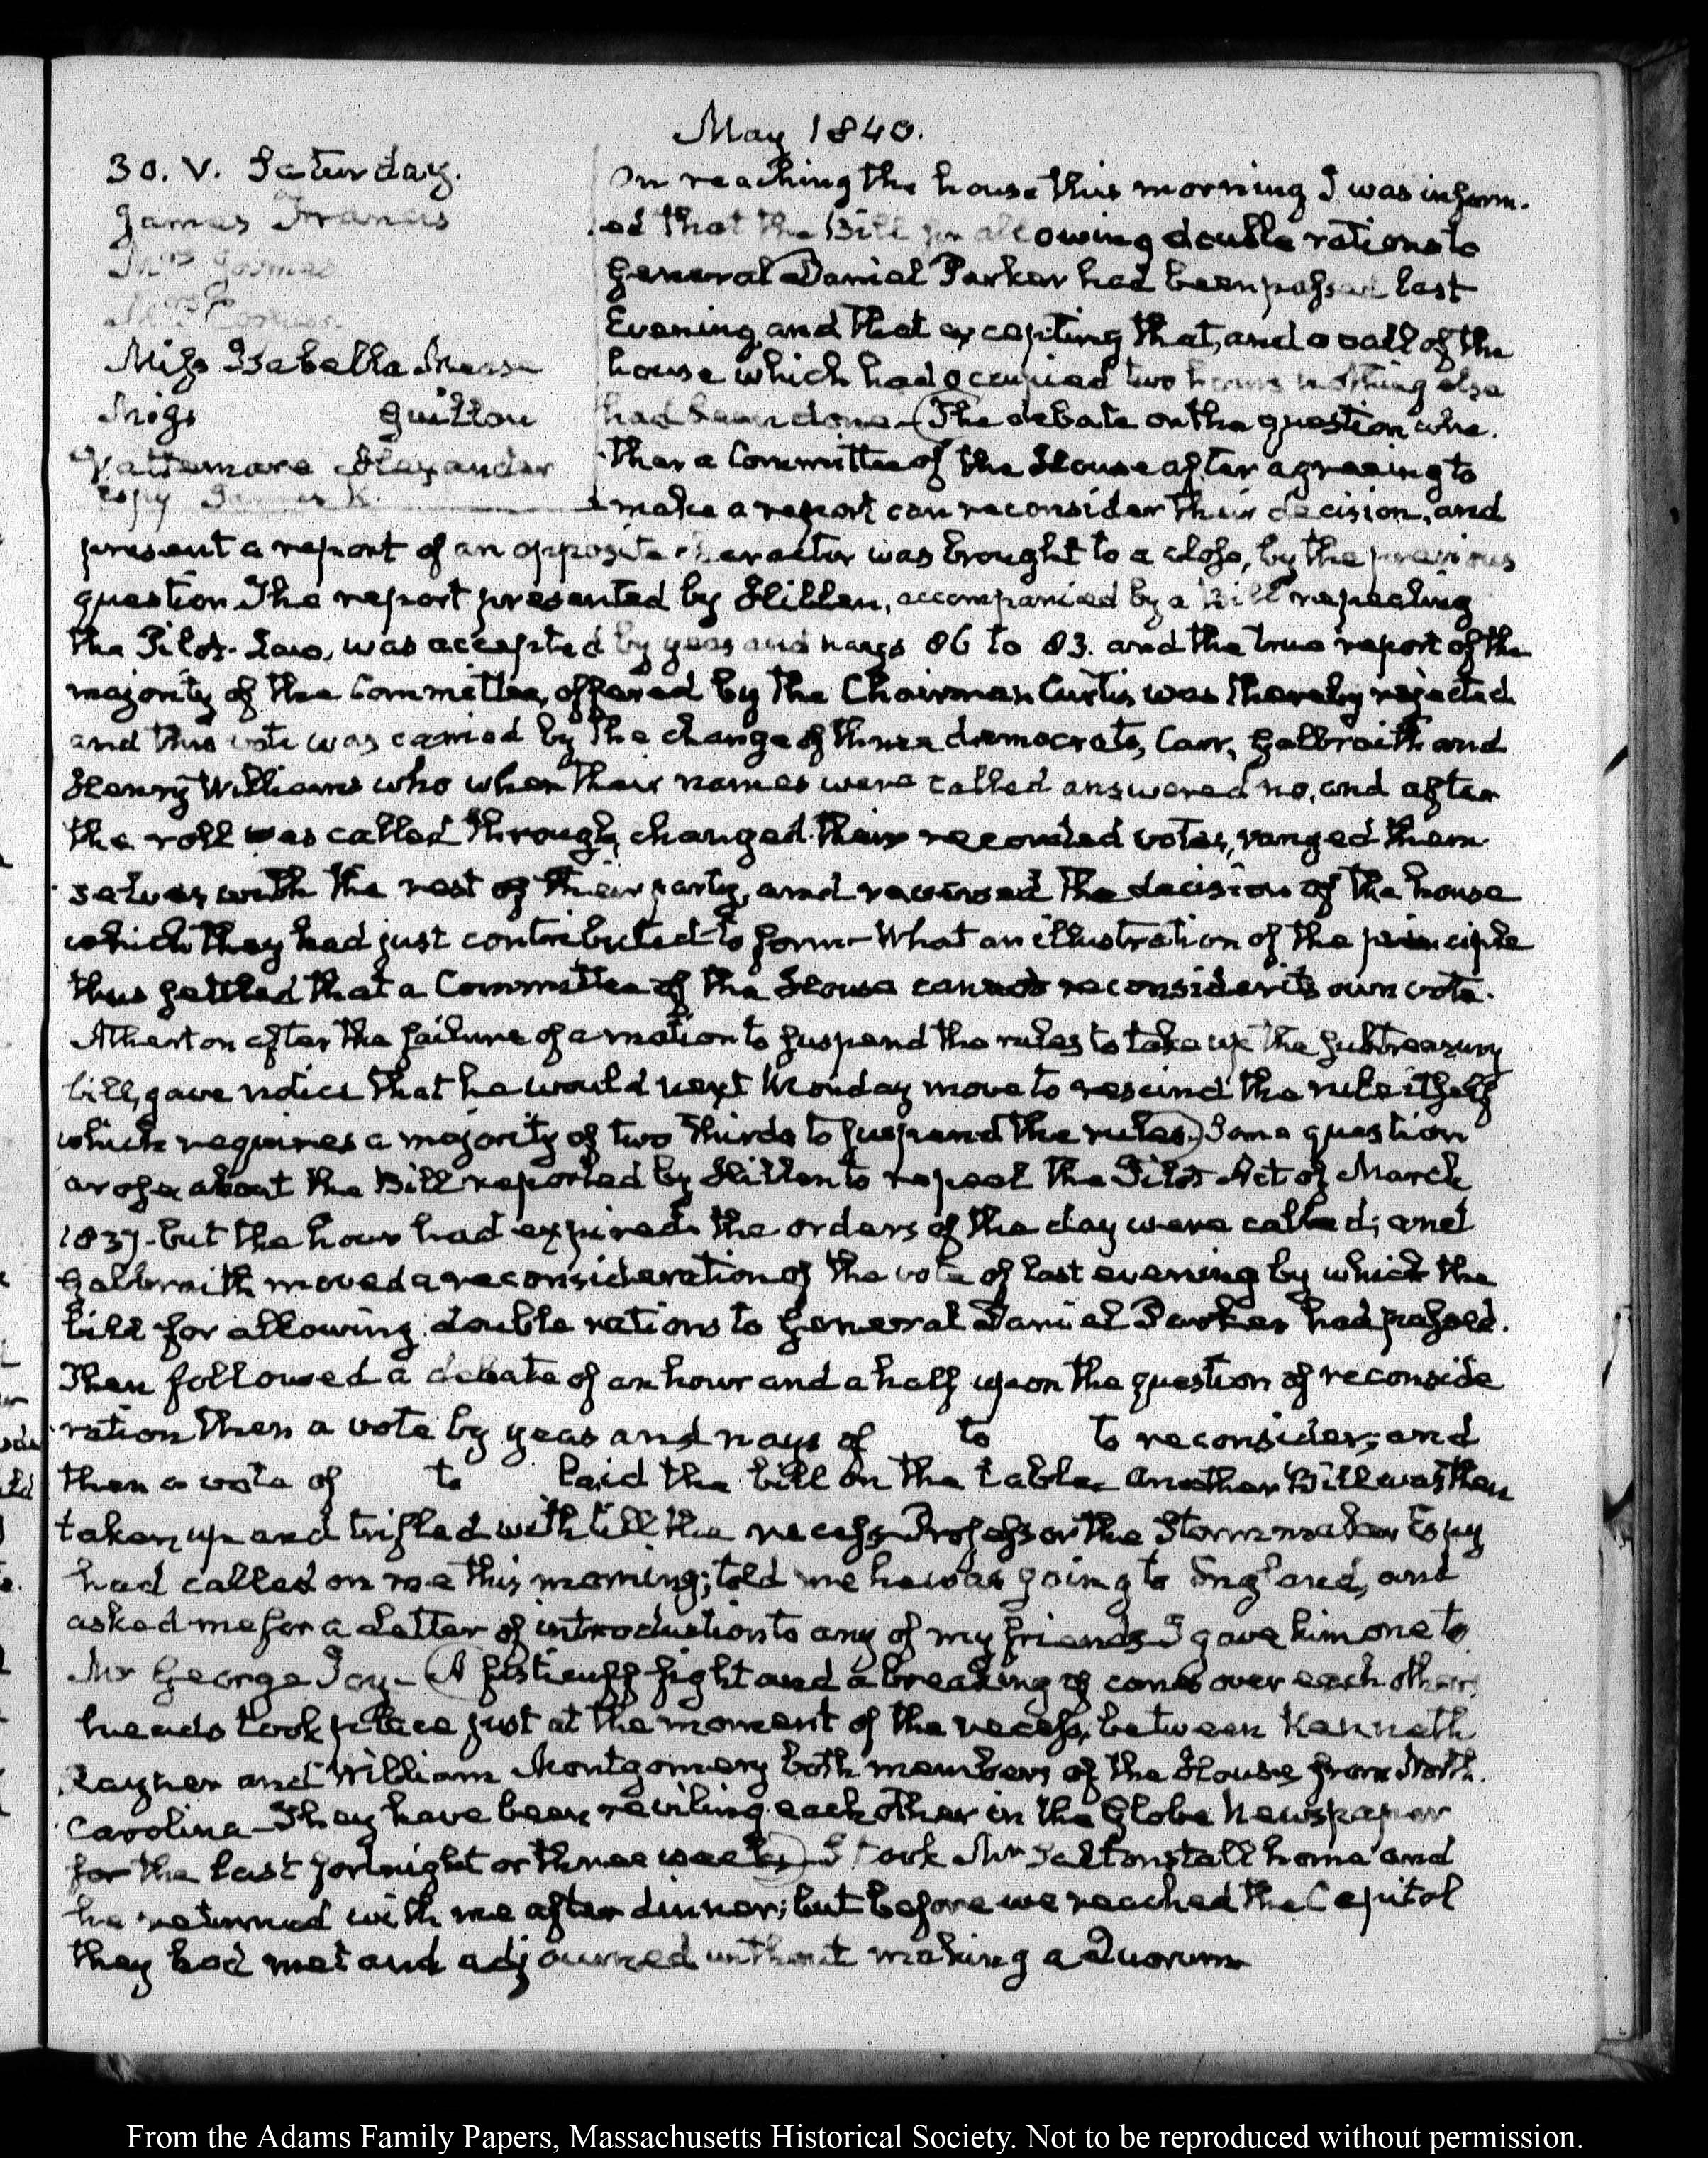 May 1840.
30. V. Saturday.
James Francis
Mrs James
Miss Isabella
Miss Guitton
Vattemare Alexander
Espy James K.
On reaching the house this morning I was inform-
ed that the Bill for allowing double rations to
General Daniel Parker had been passed last
Evening, and that excepting that, and a call of the
house which had occupied two hours nothing else
had been done— (The debate on the question whe-
ther a Committee of the House after agreeing to
make a report can reconsider their decision, and
present a report of an opposite character was brought to a close, by the previous
question The report presented by Hillen, accompanied by a Bill repealing
the Pilot-Law, was accepted by yeas and nays 86 to 83. and the true report of the
majority of the Committee, offered by the Chairman Curtis was thereby rejected
and this vote was carried by the change of three democrats, Carr, Galbraith and
Henry Williams who when their names were called answered no, and after
the roll was called through, changed their recorded votes, ranged them-
selves with the rest of their party, and reversed the decision of the house
which they had just contributed to form— What an illustration of the principle
thus settled that a Committee of the House cannot reconsider its own vote.
Atherton after the failure of a motion to suspend the rules to take up the subtreasury
bill, gave notice that he would next Monday move to rescind the rule itself
which requires a majority of two thirds to suspend the rules.) Some question
arose about the Bill reported by Hillen to repeal the Pilot Act of March
1837. but the hour had expired. the orders of the day were called; and
Galbraith moved a reconsideration of the vote of last evening by which the
bill for allowing double rations to General Daniel Parker had passed.
Then followed a debate of an hour and a half upon the question of reconside
ration then a vote by yeas and nays of to to reconsider; and
then a vote of to laid the bill on the table. Another Bill was then
taken up and trifled with till the recess— Professor the Stormmaker Espy
had called on me this morning; told me he was going to England, and
asked me for a Letter of introduction to any of my friends— I gave him one to
Mr George Joy— (A fisticuff fight and a breaking of canes over each others
heads took place just at the moment of the recess, between Kenneth
Rayner and William Montgomery both members of the House from North-
Carolina— They have been reviling each other in the Globe Newspaper
for the last fortnight or three weeks)— I took Mr Saltonstall home and
he returned with me after dinner; but before we reached the Capitol
they had met and adjourned without making a Quorum
From the Adams Family Papers, Massachusetts Historical Society. Not to be reproduced without permission.